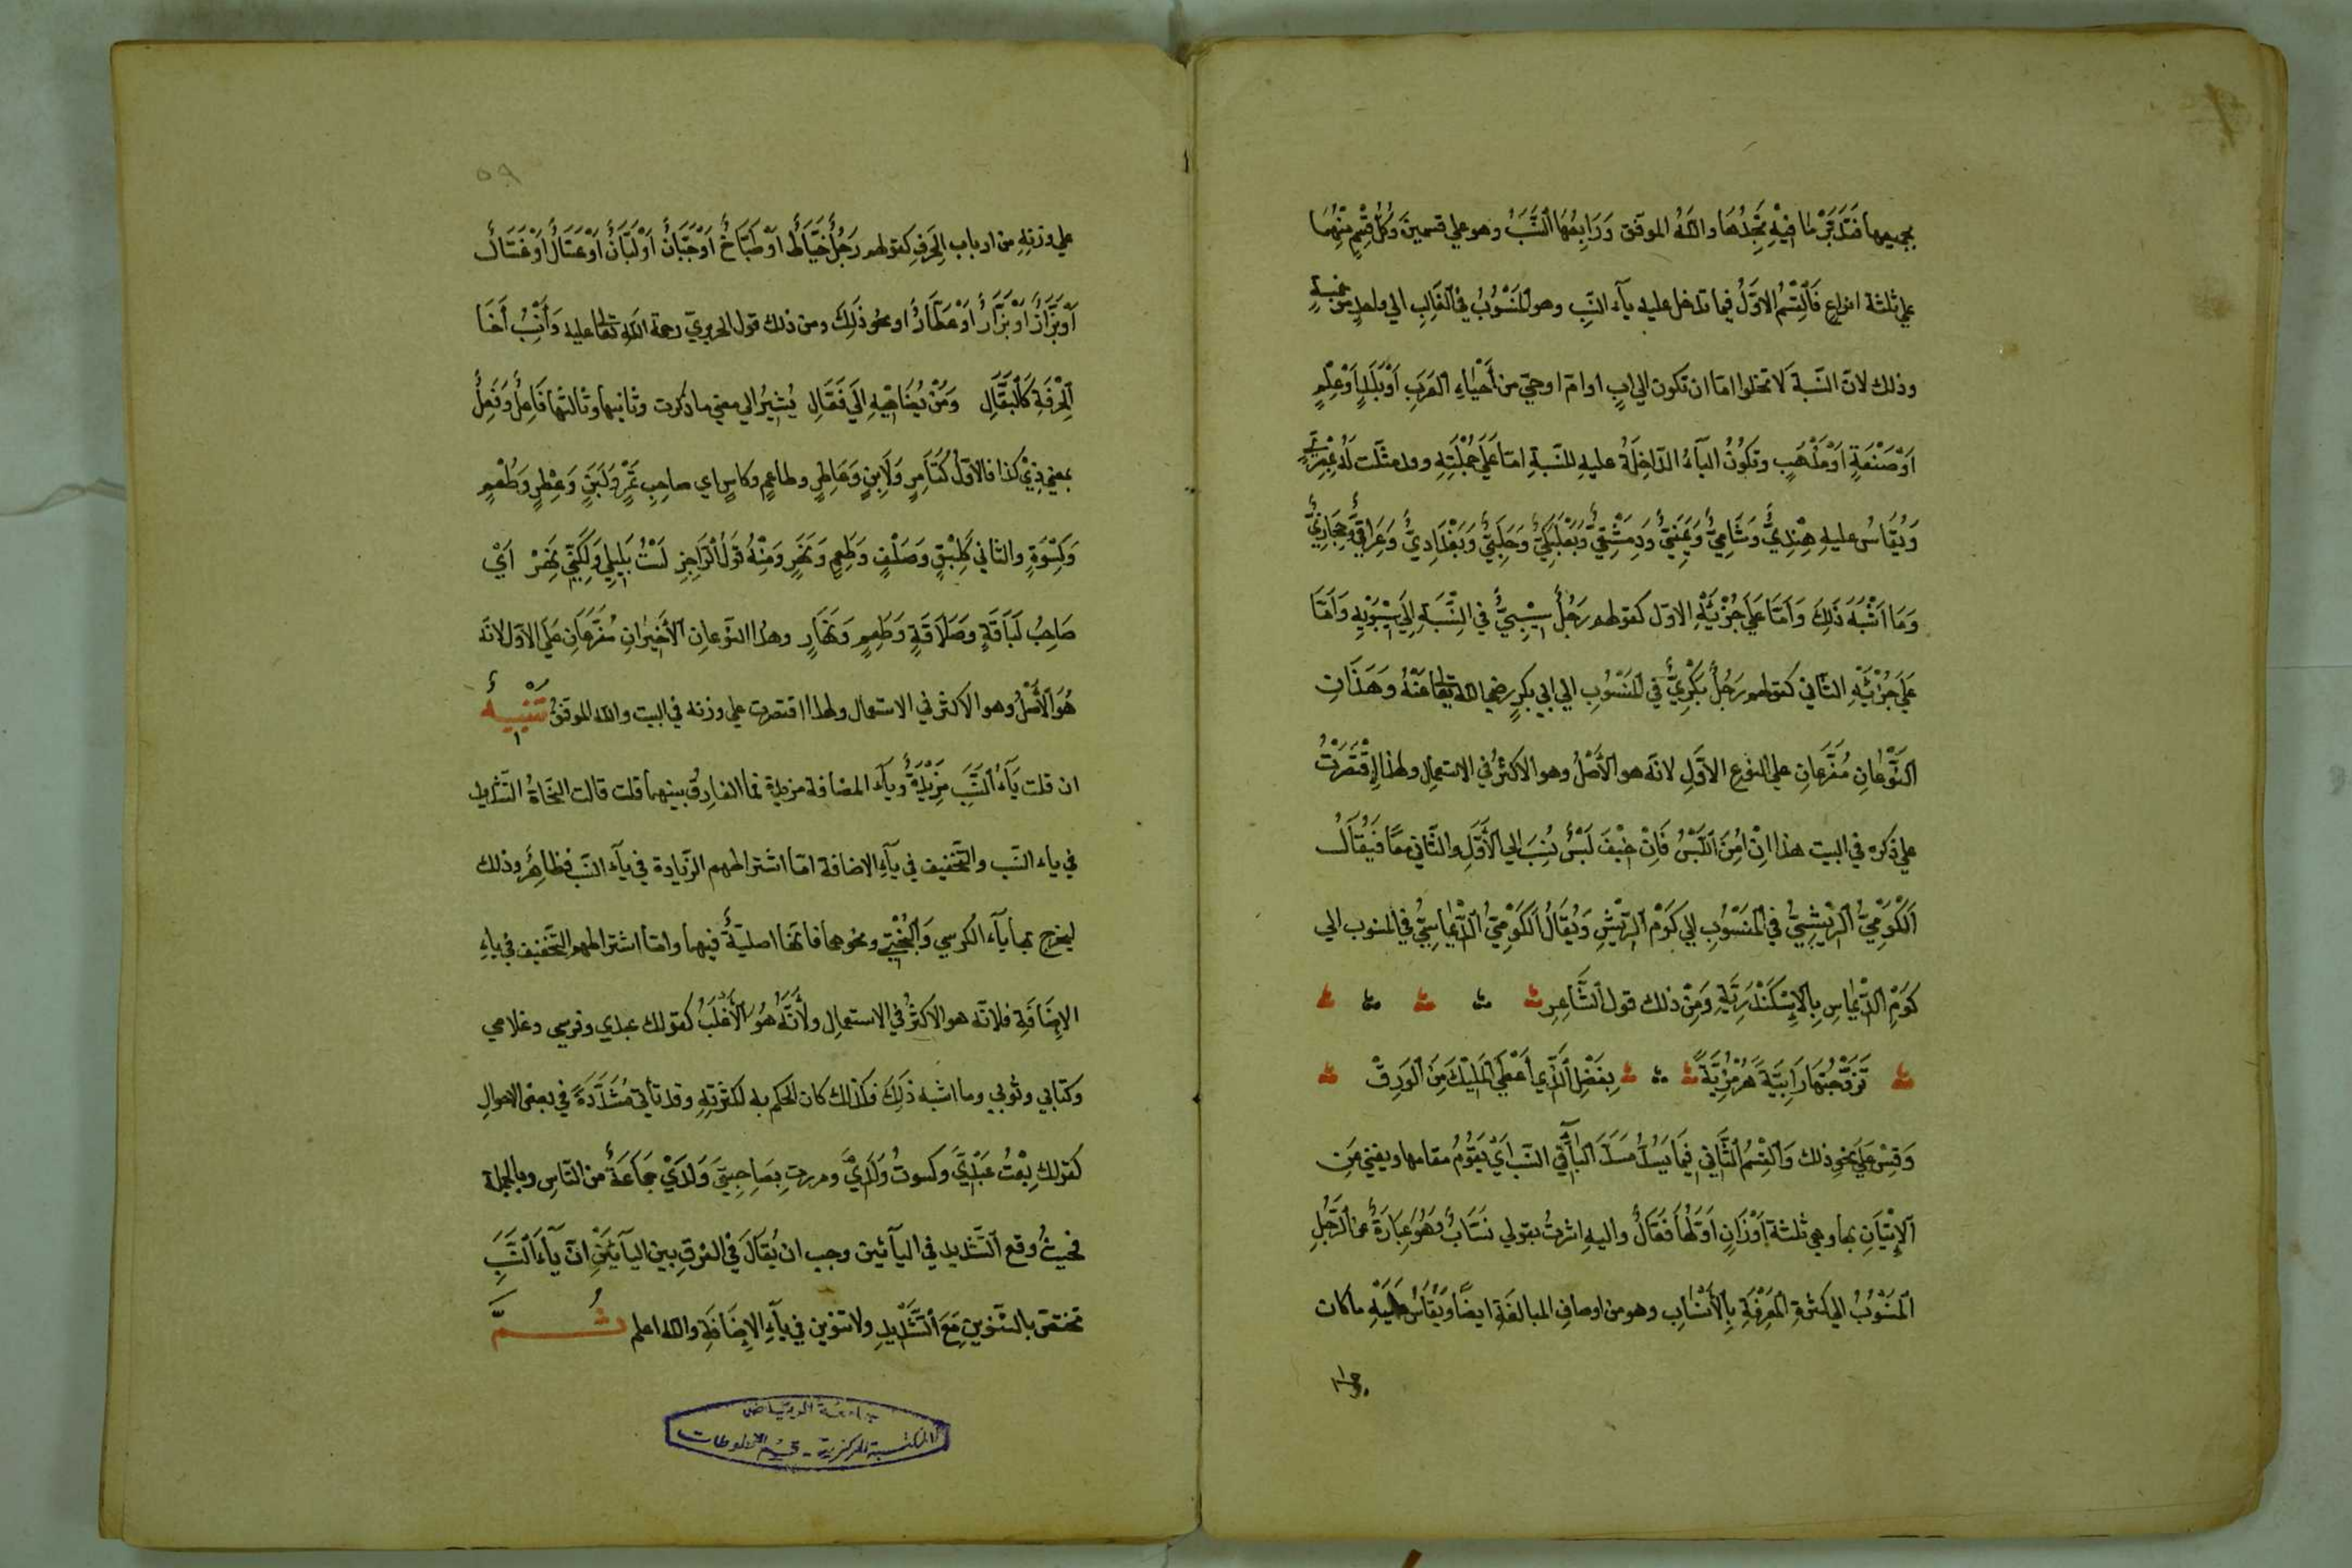 بجميعها فَتَدَبَّرْ مَا فِيْهِ تَجِدْهَا وَاللهُ الموَفق وَرَابِعُهَا النَّسَبُ وهو علي قسمينَ وَكُلُّ قِسْمٍ مِنْهُمَا
علي ثلثة انواعٍ فَالْقِسْمُ الاوَّلُ فيما تدخل عليه يآء النَّسبِ وهو المَنْسُوْبُ في الغَالِبِ الي واحدٍ من خمسةٍ
وذلك لانّ النّسبة لَا تخلوا امّا ان تكون الي ابٍ او امّ او حيّ من أَحْيَاءِ العَرَبِ اَوْ بَلَدٍ اَوْ عِلْمٍ
اَوْ صَنْعَةٍ اَوْ مَذْهَبٍ وتَكُوْنُ اليآءُ الدّاخِلَةُ عليهِ للنّسبةِ امّا عَلَي جُمْلَتِهِ وقد مثّلت لَهُ
وَيُقَاسُ عليهِ هِنْدِيٌّ وَشَامِيٌّ وَيَمَنِيٌّ وَدِمَشْقِيٌّ وَبَعْلَبَكِيٌّ وَحَلَبِيٌّ وَبَغْدَادِيٌّ وَعِرَاقِيٌّ وَحِجَازِيٌّ
وَمَا اَشْبَهَ ذَلِكَ وَامَّا عَلَي جُزْئِهِ الاوّل كقولهم رَجُلٌ سِيْبِيٌّ في النِّسْبَةِ اِلَي سِيْبَوَيْهِ وَامَّا
عَلَي جُزْئِهِ الثّاني كقولهم رَجُلٌ بَكْرِيٌّ في المَنْسُوْبِ الي ابي بكرٍ رضي الله تعالى عَنْهُ وَهَذَانِ
النَّوْعَانِ مُفَرَّعَانِ علي النوع الاَوّلِ لانّه هو الأَصْلُ وهو الاكثرُ في الاستعمال ولهذا اقْتَصَرْتُ
علي ذكره في البيت هذا اِنْ اُمِنَ اللَّبْسُ فَاِنْ خِيْفَ لَبْسٌ نُسِبَ الي الأَوَّلِ والثّاني معًا فَيُقَالُ
اَلْكَوْمِيُّ الرِّيْشِيُّ في المَنْسُوْبِ الي كَوْمِ الرِّيْشِ وَيُقَالُ اَلكَوْمِيُّ الدِّيْمَاسِيُّ في المنسوب الي
كَوْمِ الدِّيْمَاسِ بِالإِسْكَنْدَرِيَّةِ وَمِنْ ذلك قول الشَّاعِرِ
تَزَوَّجْتُهَا رَامِيَّةً هُرْمُزِيَّةً بِفَضْلِ الَّذِي أَعْطَي المَلِيْكُ مِنَ الوَرِقْ
وَقِسْ عَلَي نحوِ ذلك وَالْقِسْمُ الثَّانِي فِيْمَا يَسُدُّ مَسَدَّ اليآءِ في النّسب اَيْ يَقُوْمُ مقامها ويغني عَنِ
الإِتْيَانِ بها وهي ثلثة أَوْزَانٍ اَوَّلُهَا فَعَّالٌ واليهِ اشرتُ بقولي نَسَّابٌ وَهُوَ عِبَارَةٌ عن الرَّجُلِ
المَنْسُوْبُ الي كثرةِ المَعْرِفَةِ بِالأَنْسَابِ وهو من اوصافِ المبالغَةِ ايضًا وَيُقَاسُ عَلَيْهِ ما كان
علي
علي وزنِهِ من ارباب الحِرَفِ كقولهم رَجُلٌ خَيَّاطٌ اَوْ طَبَّاخٌ اَوْ جَبَّانٌ اَوْ لَبَّانٌ اَوْ عَسَّالٌ اَوْ غَسَّالٌ
اَوْ بَزَّازٌ اَوْ بَزَّارٌ اَوْ عَطَّارٌ او نحُو ذَلِكَ ومن ذلك قول الحريريّ رحمة الله تعالى عليه وَانْسُبْ أَخَا
الْحِرْفَةِ كَالْبَقَّالِ وَمَنْ يُضَاهِيْهِ اِلَي فَعَّالِ يُشيرُ الي معني ما ذكرت وثانيها وثالثها فَاعِلٌ وَفَعِلٌ
بمعني ذِيْ كذا فالاوّلُ كَتَامِرٍ وَلَابِنٍ وَعَاطِرٍ وطاعمٍ وكاسٍ اي صاحِبِ تَمْرٍ وَلَبَنٍ وَعِطْرٍ وَطُعْمٍ
وَكِسْوَةٍ والثاني كَلَبِقٍ وَصَلْفٍ وَطَعِمٍ وَنَهِرٍ وَمِنْهُ قَوْلُ الرَّاجِزِ لَسْتُ بِلَيْلِيٍّ وَلَكِنِّي نَهِرْ اَيْ
صَاحِبُ لَبَاقَةٍ وَصَلَاقَةٍ وَطَعْمٍ وَنَهَارٍ وهذا النّوعانِ الأَخِيْرَانِ مُفَرَّعَانِ عَلَي الاوّل لانّه
هُوَ الأَصْلُ وهو الاكثر في الاستعمال ولهذا اقتصرت علي وزنه في البيت والله الموفقُ تَنْبِيْهٌ
ان قلت يَآءُ النَّسَبِ مَزِيْدَةٌ ويآء المضافة مزيدة فما الفارِقُ بينهما قلت قالت النُّحَاةُ التّشديد
في ياء النّسب والتّخفيف في يآءِ الاضافة امّا اشتراطهم الزّيادة في يآء النّسب فظاهِرٌ وذلك
ليخرج بها يآء الكرسي وَالبُخْتِيِّ ونحوهما فانّها اصليّةٌ فيهما وامّا اشتراطهم التَّخْفيف في ياءِ
الاِضَافَةِ فلانّه هو الاكثرُ في الاستعمال ولأَنَّهُ هُوَ الأَغْلَبُ كقولك عبدي وفرسي وغلامي
وكتابي وثوبي وما اشبه ذَلِكَ فكذلك كان الحكم به لكثرتِهِ وقد تأتي مُشَدَّدَةً في بعض الاحوالِ
كقولك بِعْتُ عَبْدَيَّ وكسوتُ وَلَدَيَّ ومررت بِصَاحِبَيَّ وَلَدَيَّ جَمَاعَةٌ من النّاسِ وبالجملة
فحيثُ وقع التَّشديد في اليآئين وجب ان يُقَالَ في الفرقِ بين اليآئَيْنِ انّ يآءَ النَّسَبِ
تختصّ بالتّنوينِ مَعَ التَّشْدِيْدِ ولا تنوين في يآءِ الاِضَافَةِ والله اعلم ثُمَّ
جامعة الرياض
المكتبة المركزية - قسم المخطوطات